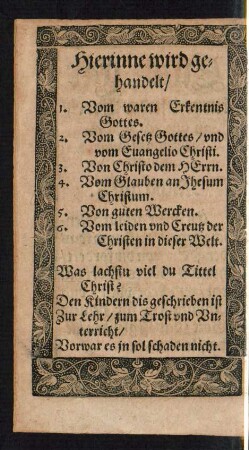 Hierinne wird ge-
handelt/
1. Vom waren Erkentnis
Gottes.
2. Vom Gesetz Gottes/ vnd
vom Euangelio Christi.
3. Von Christo dem HErrn.
4. Vom Glauben an Jhesum
Christum.
5. Von guten Wercken.
6. Vom leiden vnd Creutz der
Christen in dieser Welt.
Was lachstu viel du Tittel
Christ?
Den Kindern dis geschrieben ist
Zur Lehr/ zum Trost vnd Vn-
terricht/
Vorwar es jn sol schaden nicht.